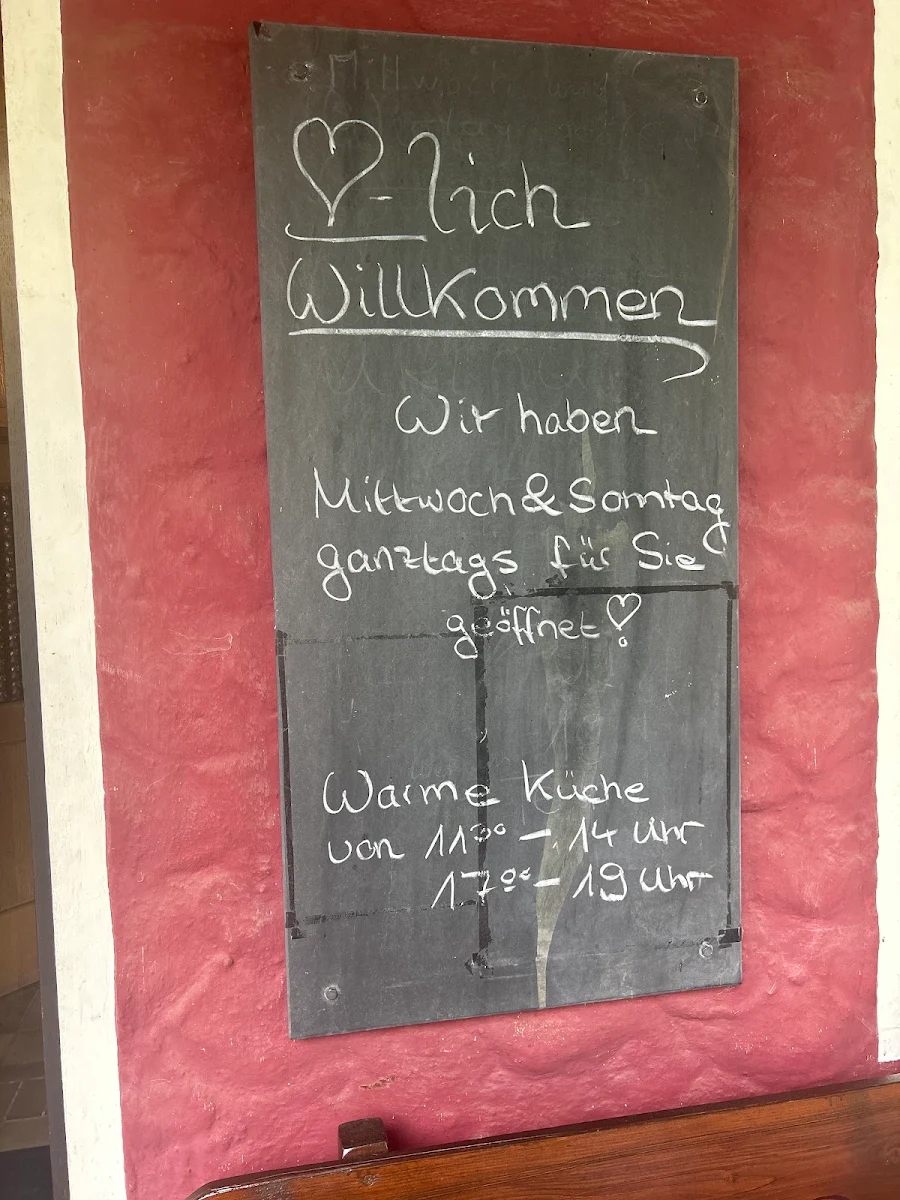 ♡-lich
Willkommen
Wir haben
Mittwoch & Sonntag
ganztags für Sie
geöffnet!
Warme Küche
von 11³⁰ - 14 Uhr
17⁰⁰ - 19 Uhr